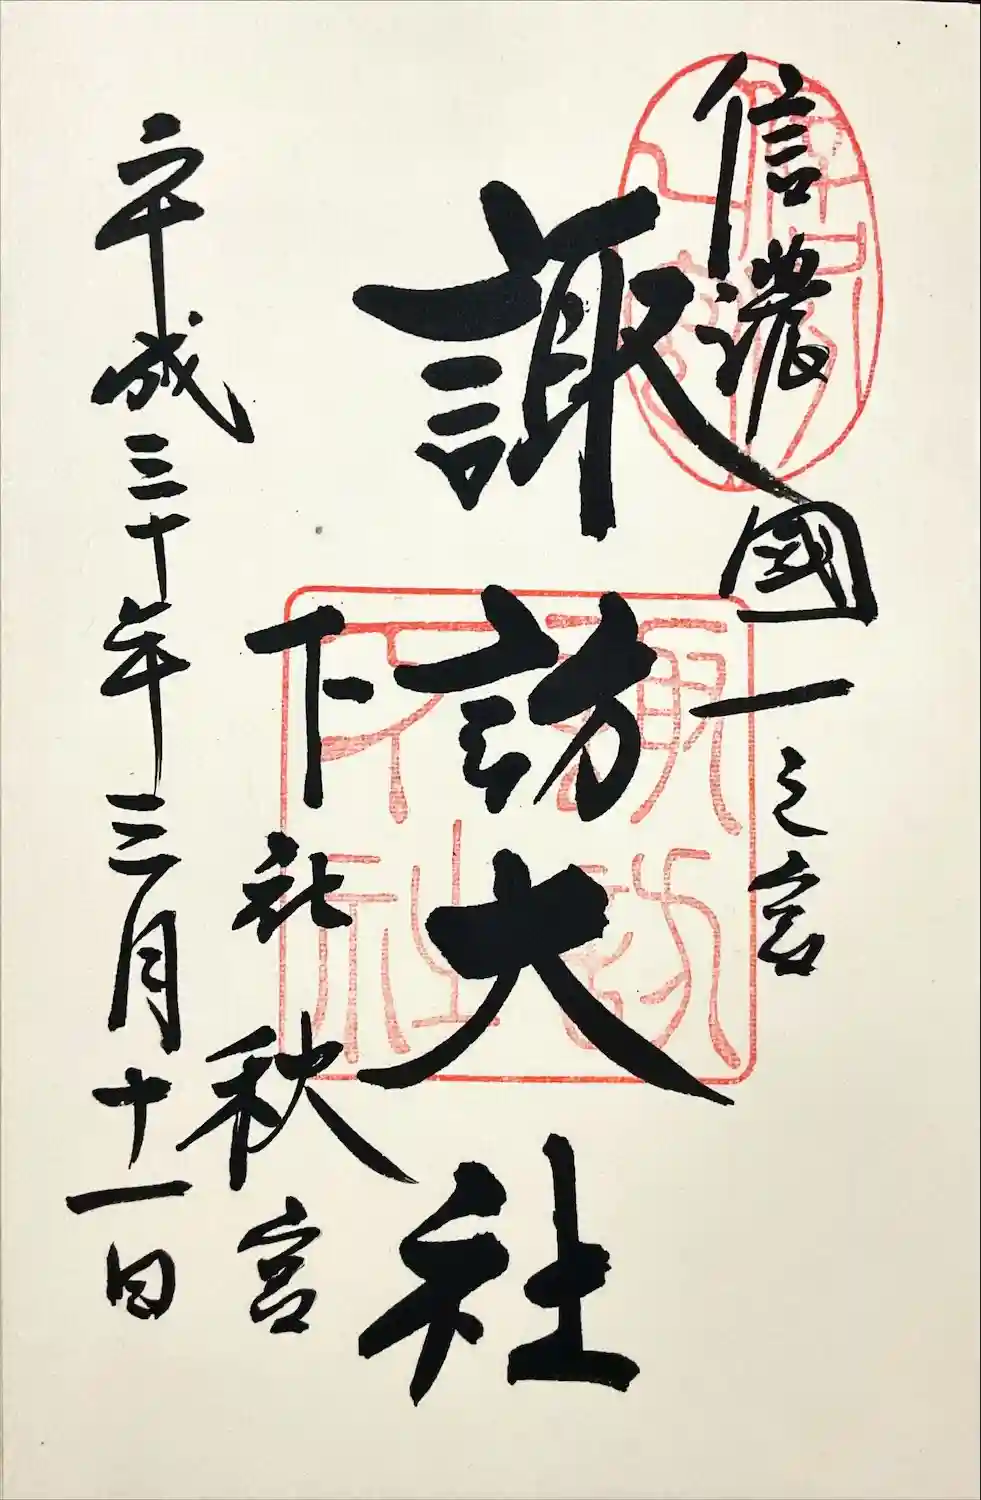 信濃國一之宮
諏訪大社
下社秋宮
平成三十年三月十一日
諏訪
下社